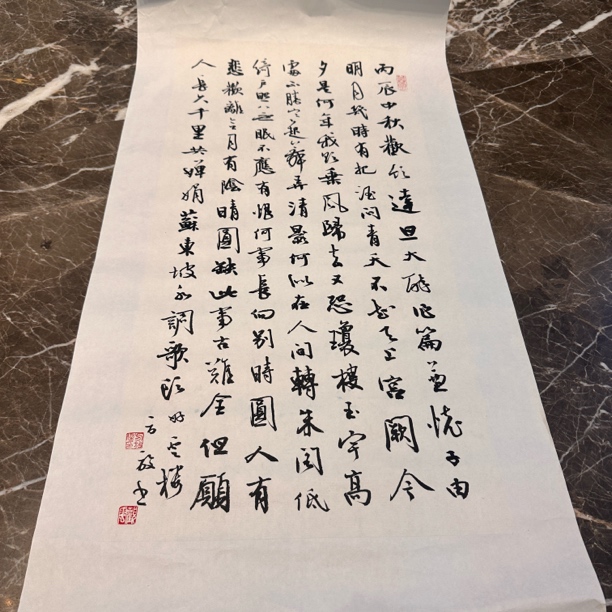 丙辰中秋歡飲達旦大醉作篇兼懷子由
明月幾時有把酒問青天不知天上宮闕今
夕是何年我欲乘風歸去又恐瓊樓玉宇高
處不勝寒起舞弄清影何似在人间轉朱阁低
綺户照無眠不應有恨何事長向别時圓人有
悲歡離合月有陰晴圓缺此事古難全但願
人長久千里共嬋娟蘇東坡水調歌頭